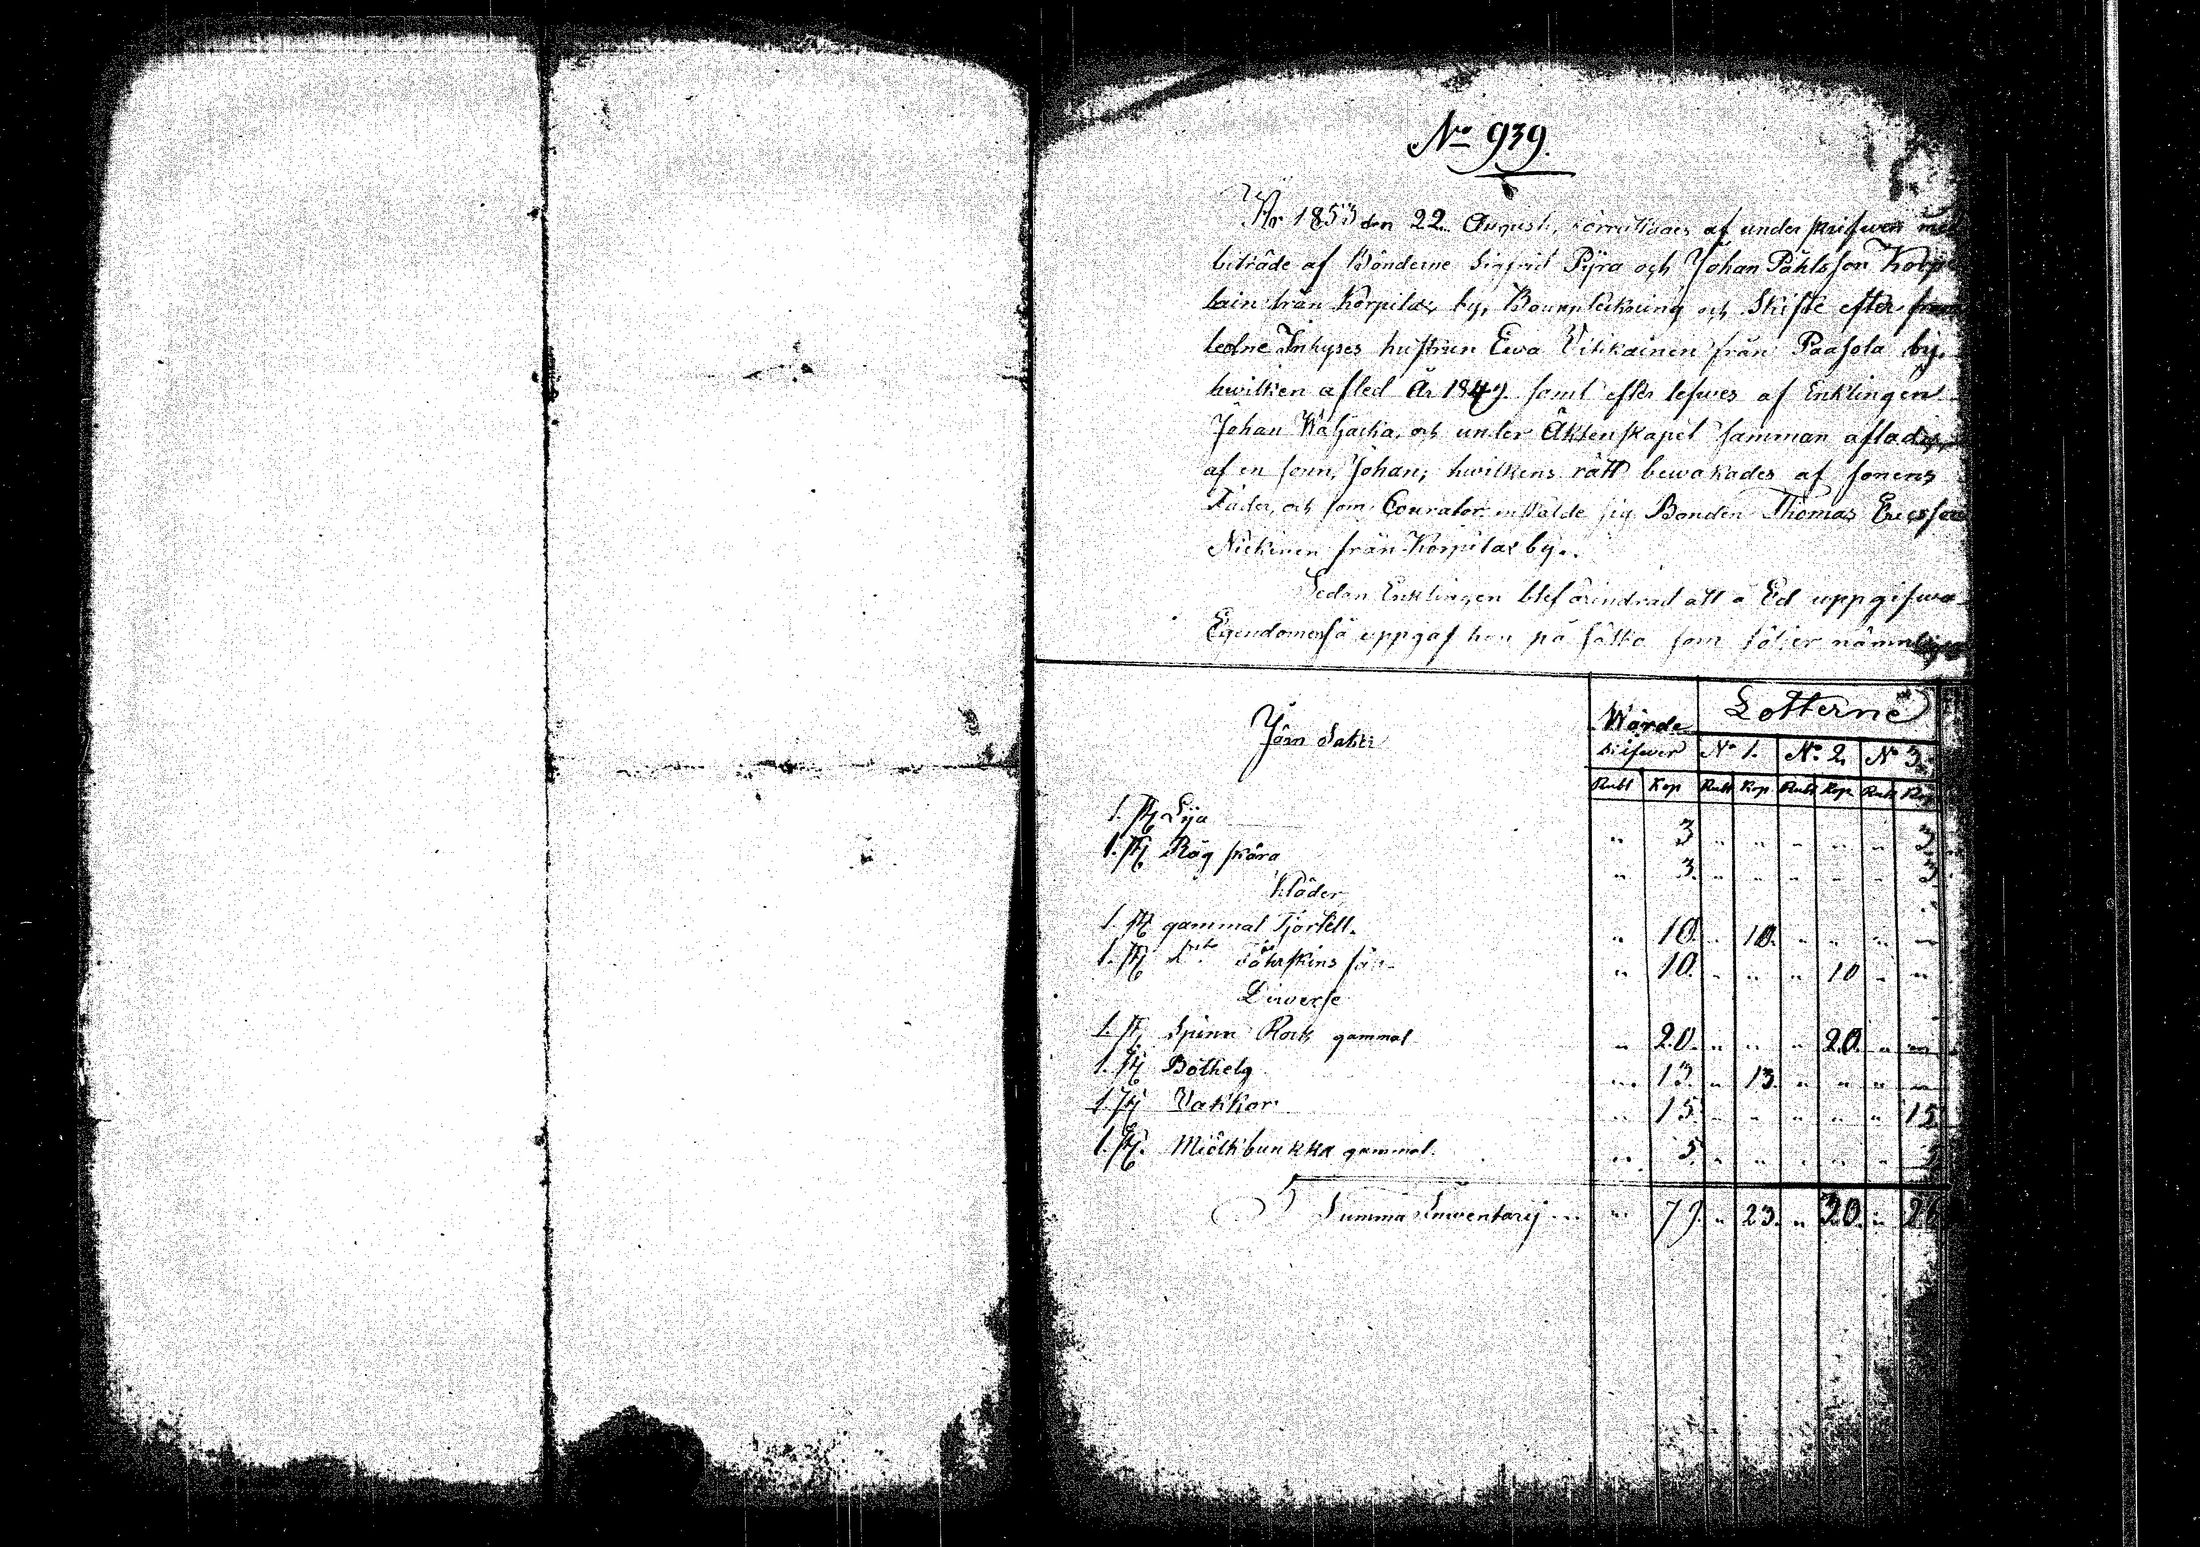 No 939.
År 1853 den 22 August, förrättades af underskrifwen med
biträde af Bönderne Sigfrid Pÿra och Johan Påhlsson Korpe
lain från Korpilax by, Bouppteckning och Skifte efter
ledne Inhyses hustrun Ewa Vitikainen från Paasola by.
hwilken afled År 1849. samt efter lefwes af Enklingen
Johan och under Äktenskapet samman aflades
af en sonn, Johan; hwilkens rätt bewakades af sonens
Fader, och som Courator instälde sig Bonden Thomas Ericsson
Niekinen från Korpilax by.
Sedan Enklingen blef ärindrad att å Ed uppgifwa
Egendomen så uppgaf han på sätt som föl:er nämnligen
Järn Saker Wärde Lotterne
Silfwer No 1. No. 2. No 3.
Rubl Kop Rubl Kop Rubl Kop Rubl Kop
1. st Lija " 3 " " " " " 3
1. st Råg skära " 3. " " " " " 3
Kläder
1. st gammal Tjortell. " 10. " 10. " " " "
1. st Dito Fåhrskins " 10. " " " 10 " "
Diwerse
1. st Spinn Rock gammal " 20. " " " 20. " "
1. st Böthelg " 13. " 13. " " " "
1. st Vakkor " 15. " " " " " 15
1. st. Miölkbunkka gammal. " 5. " " " " " 5
Summa Inwentarij " 79. " 23. " 30. " 26